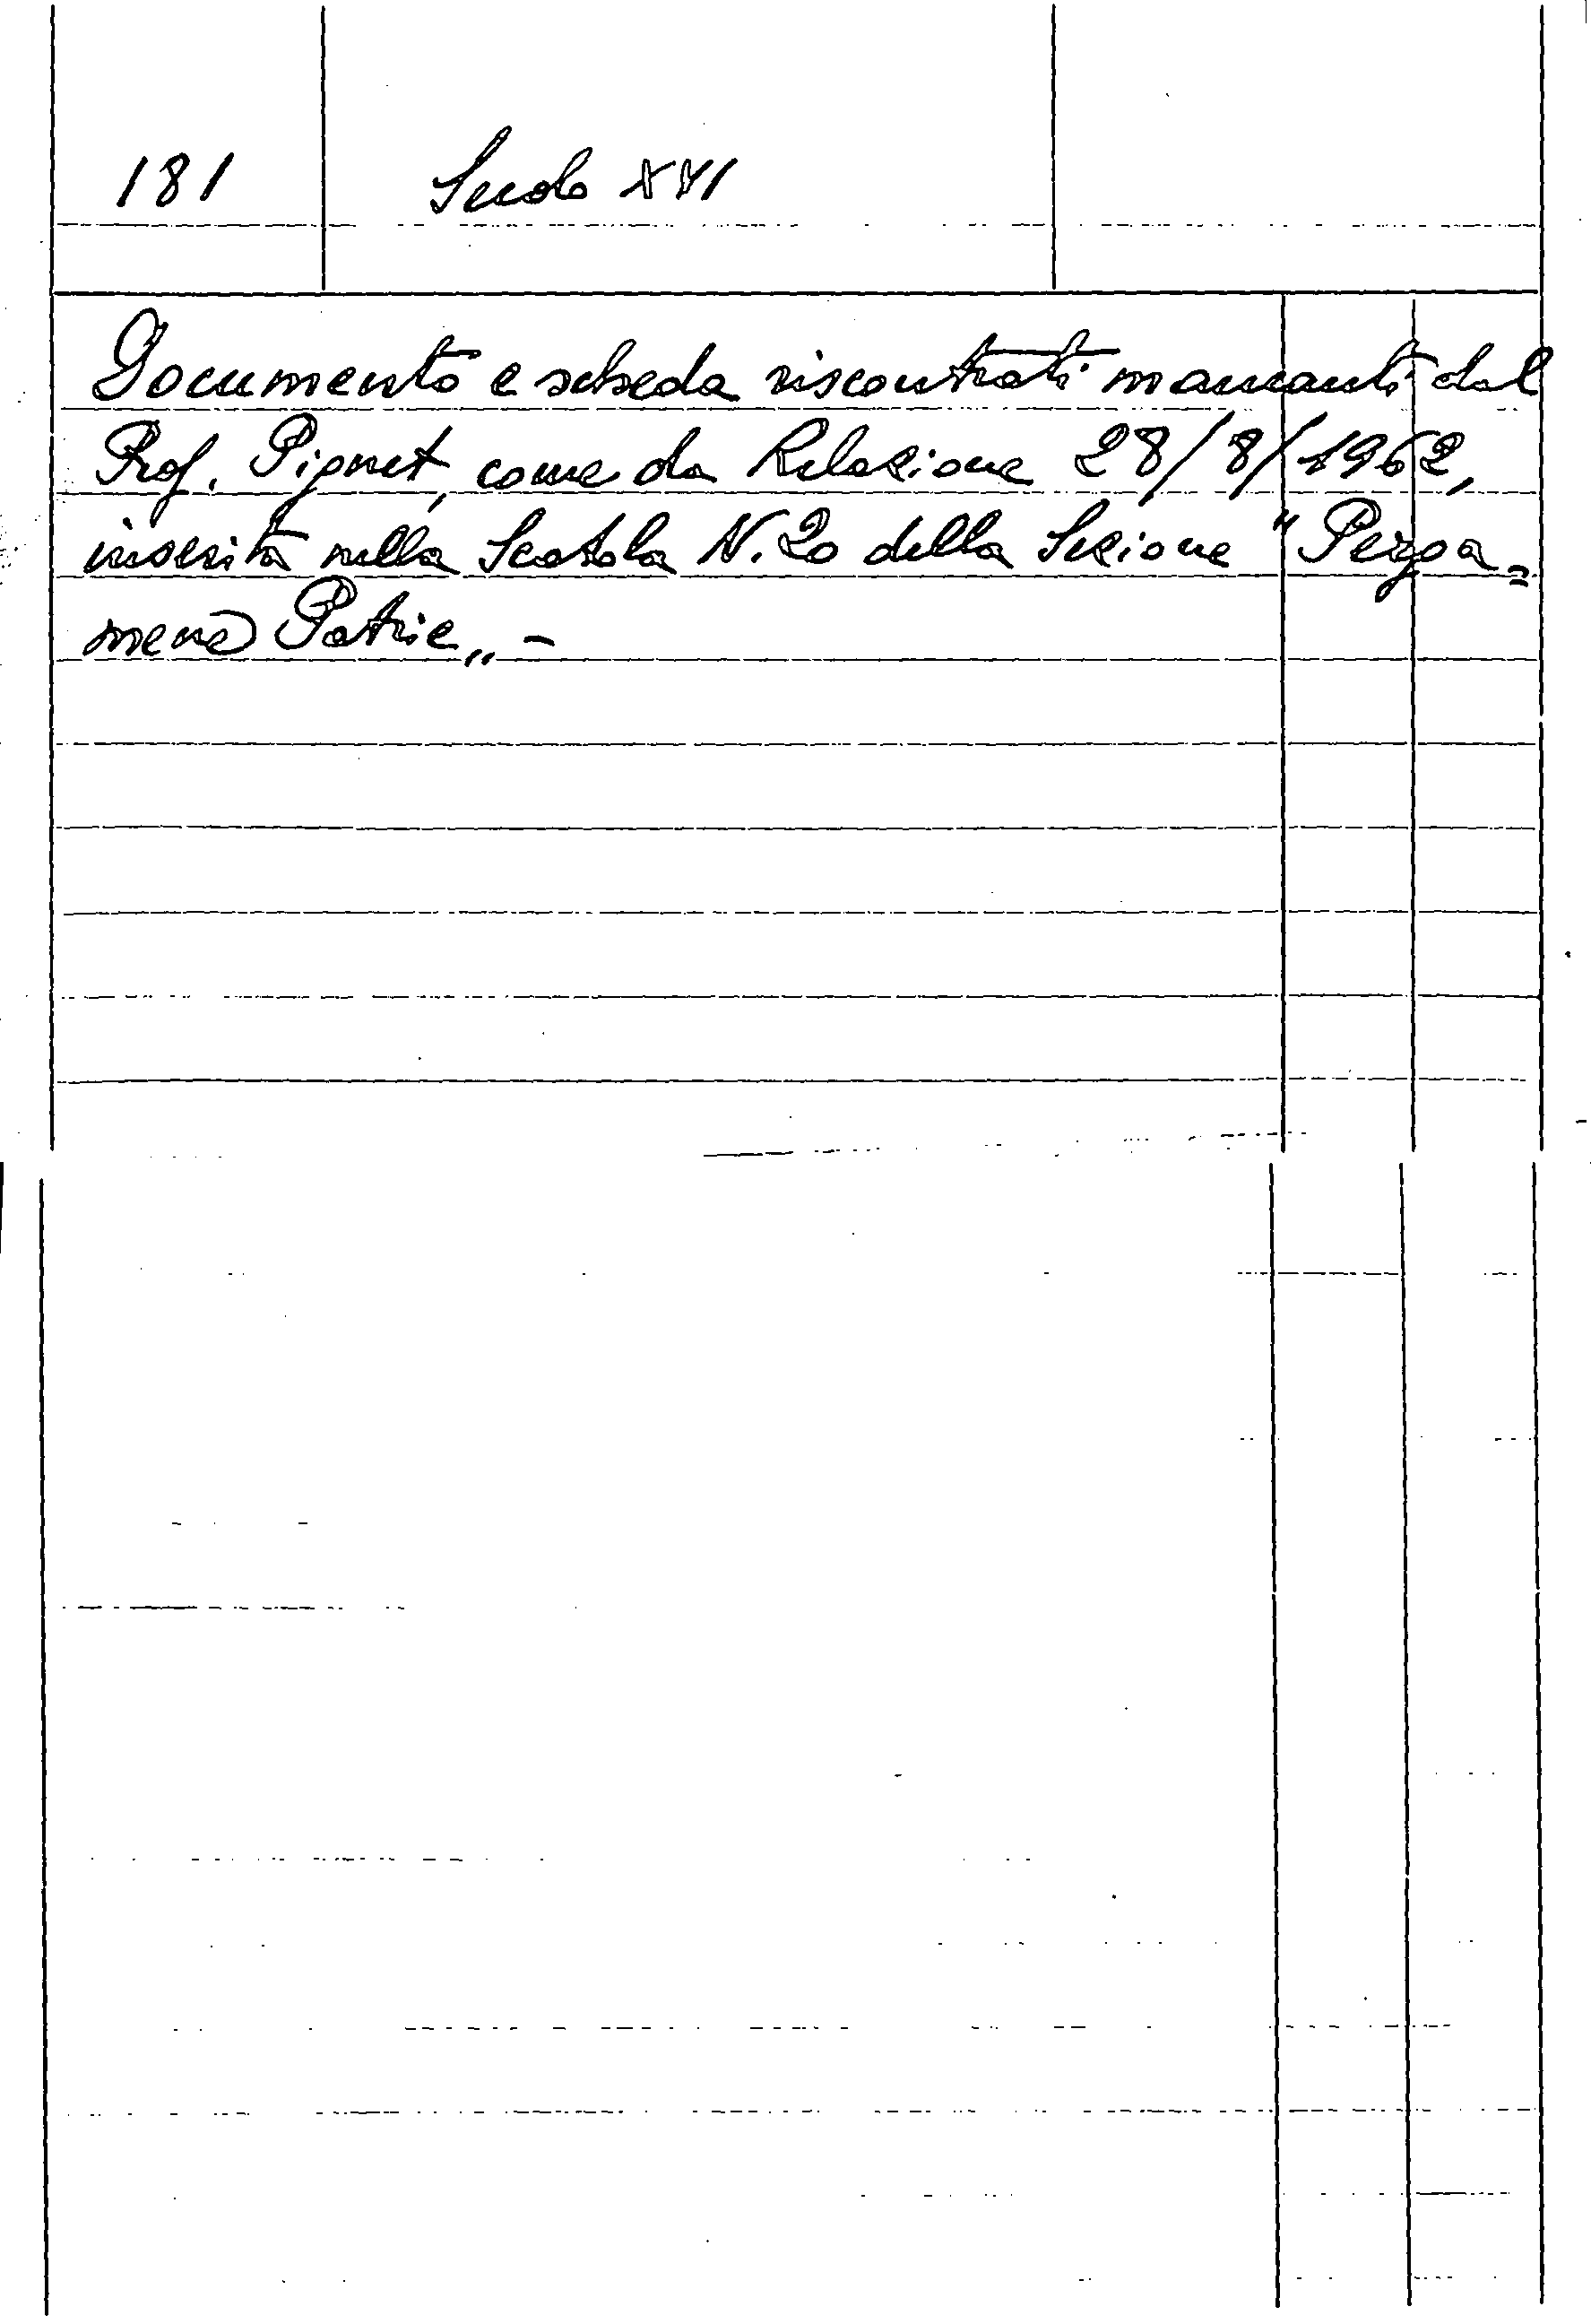 181 Secolo XVI
Documento e scheda riscontrati mancanti dal
Prof. Pignet, come da Relazione 28/8/1962,
inserita nella Scatola N. 20 della Sezione "Perga=
mene Patrie„ -